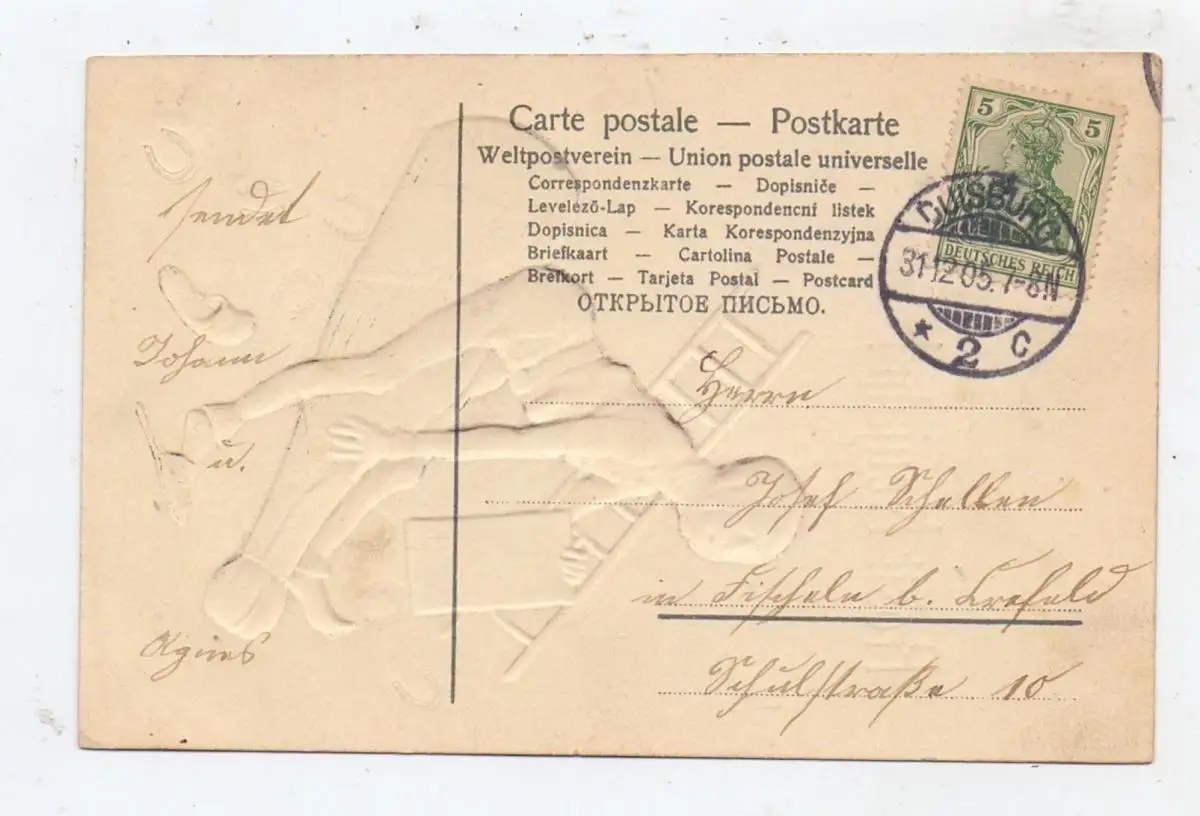 Carte postale — Postkarte
Weltpostverein — Union postale universelle
Correspondenzkarte — Dopisniče —
Levelező-Lap — Korespondencní listek
Dopisnica — Karta Korespondenzyjna
Briefkaart — Cartolina Postale —
Brefkort — Tarjeta Postal — Postcard
ОТКРЫТОЕ ПИСЬМО.
5 5
DEUTSCHES REICH
DUISBURG
31.12.05.7-8N
* 2 C
sendet
Johann
u.
Agnes
Herrn
Josef Schellen
in Fischeln b. Crefeld
Schulstraße 10